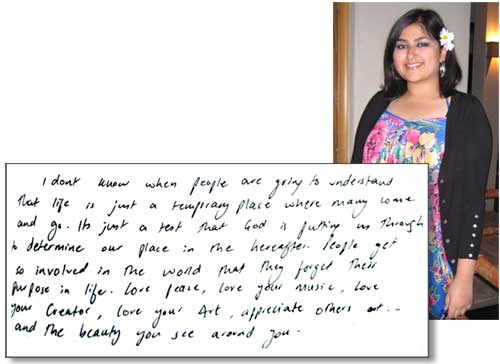 I dont know when people are going to understand
that life is just a temporary place where many come
and go. Its just a test that God is putting us through
to determine our place in the hereafter. People get
so involved in the world that they forget their
purpose in life. Love peace, love your music, love
your Creator, love your Art, appreciate others art..
and the beauty you see around you.